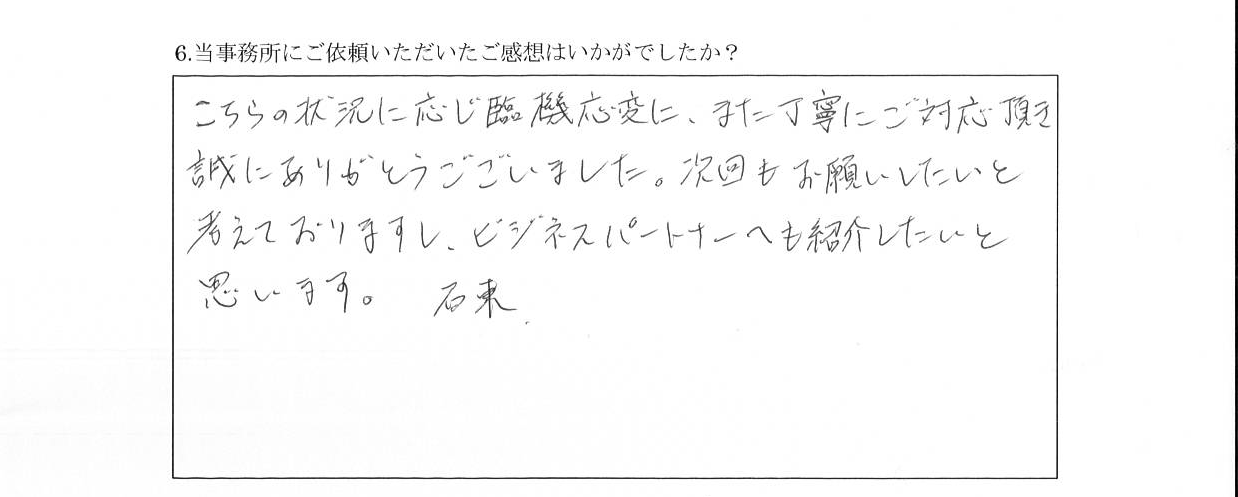 6.当事務所にご依頼いただいたご感想はいかがでしたか?
こちらの状況に応じ臨機応変に、また丁寧にご対応頂き
誠にありがとうございました。次回もお願いしたいと
考えておりますし、ビジネスパートナーへも紹介したいと
思います。 石東